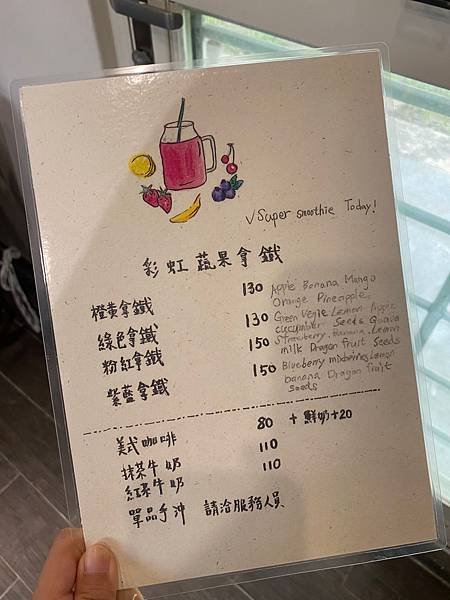 ✓Super smoothie Today!
彩虹蔬果拿鐵
橙黃拿鐵 130 Apple Banana Mango Orange Pineapple
綠色拿鐵 130 Green Vegie Lemon Apple cucumber Seeds Guava
粉紅拿鐵 150 Strawberry Banana Lemon milk Dragon fruit Seeds
紫藍拿鐵 150 Blueberry mixberries Lemon banana Dragon fruit Seeds
美式咖啡 80 + 鮮奶+20
抹茶牛奶 110
紅茶牛奶 110
單品手沖 請洽服務人員